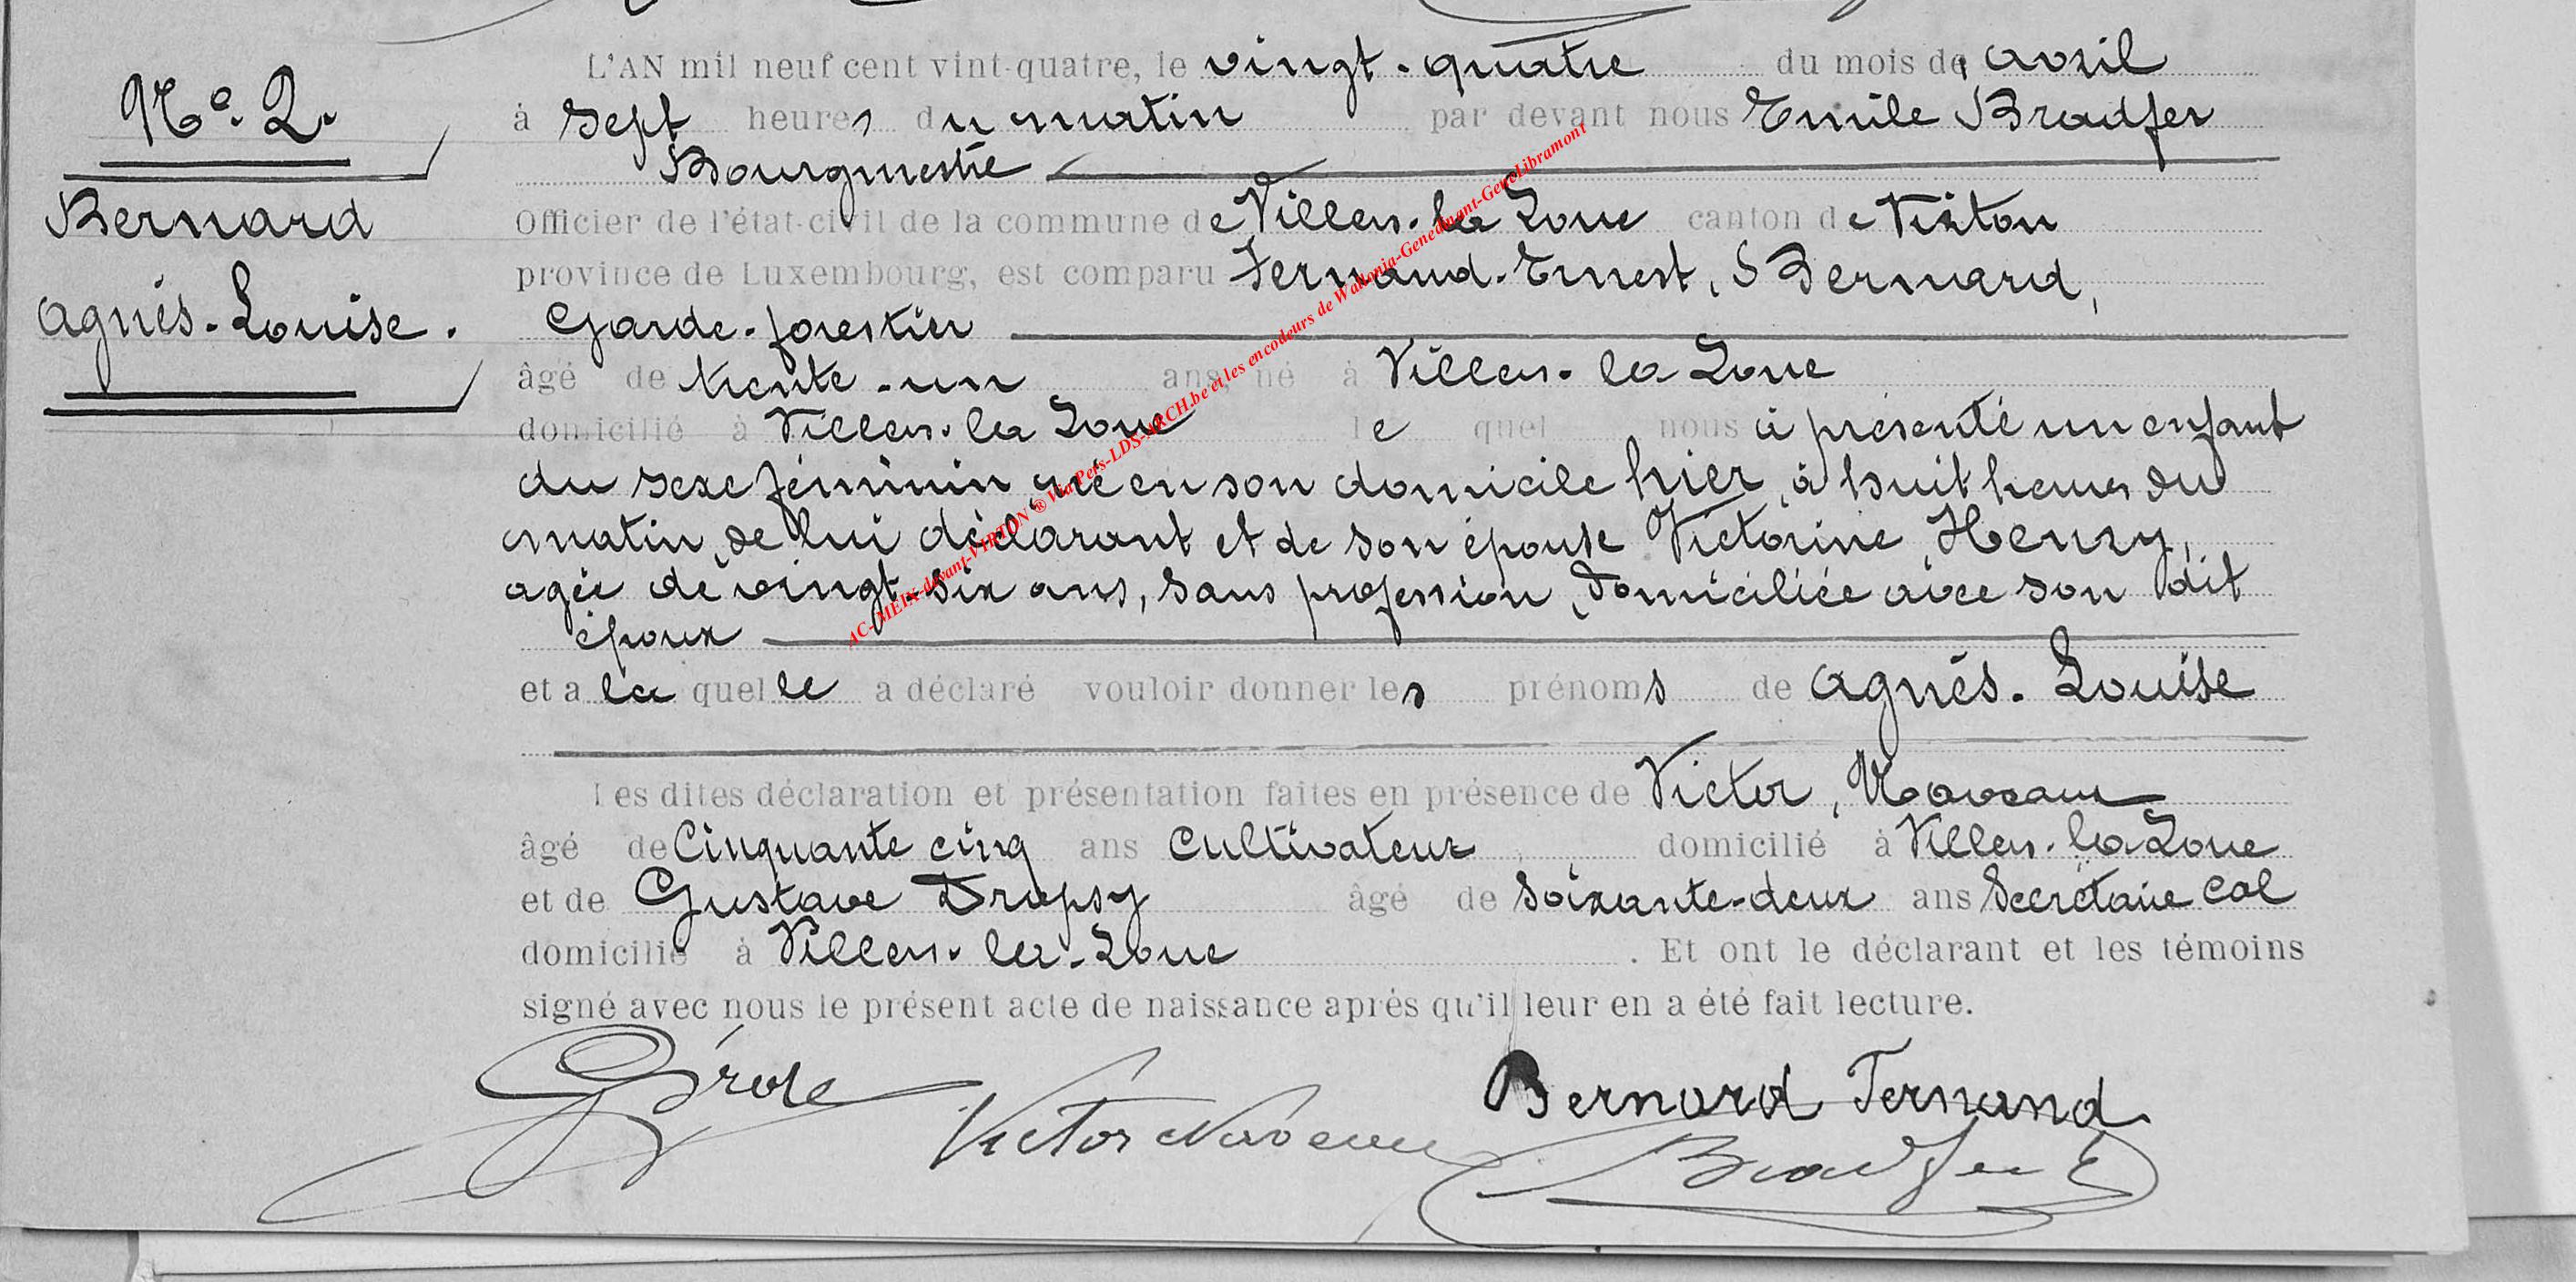 N°. 2.
Bernard
Agnés-Louise.
L'AN mil neuf cent vint-quatre, le vingt-quatre du mois de avril
à sept heures du matin par devant nous Emile Bradfer
Bourgmestre
Officier de l'état-civil de la commune de Villers-la Loue canton de Virton
province de Luxembourg, est comparu Fernand-Ernest, Bernard,
Garde-forestier
âgé de trente-un ans, né à Villers-la Loue
domicilié à Villers-la Loue le quel nous a présenté un enfant
du sexe féminin, né en son domicile hier, à huit heures du
matin, de lui déclarant et de son épouse Victorine, Henry,
agée de vingt-six ans, sans profession, domiciliée avec son dit
époux
et a la quelle a déclaré vouloir donner les prénoms de Agnés-Louise
Les dites déclaration et présentation faites en présence de Victor,
âgé de Cinquante cinq ans Cultivateur domicilié à Villers-la Loue
et de Gustave âgé de Soixante-deux ans Secrétaire Cal
domicilié à Villers-la-Loue . Et ont le déclarant et les témoins
signé avec nous le présent acte de naissance après qu'il leur en a été fait lecture.
Bernard Fernand
Victor
Bradfer E
AC-MEIX-devant-VIRTON ® Via Pers-LDS-ARCH.be et les encodeurs de Wallonia-Genedinant-GeneLibramont